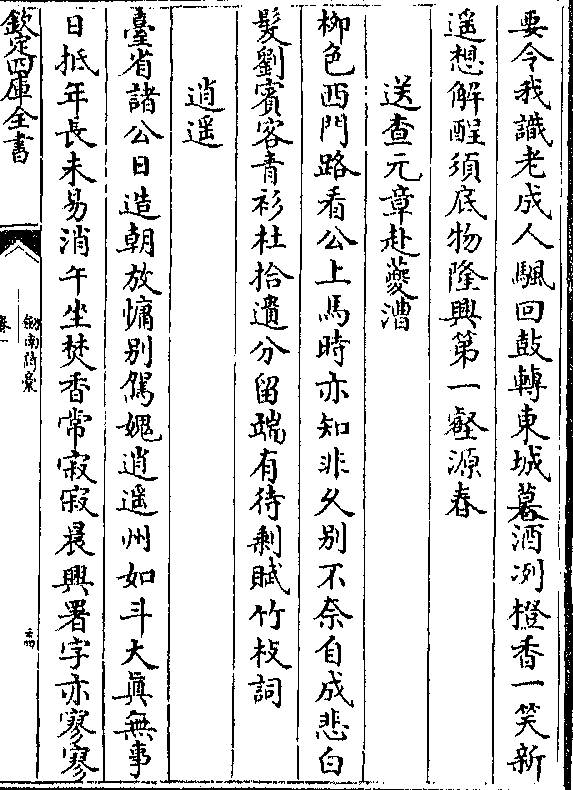 要令我識老成人颿回鼓轉東城暮酒冽橙香一笑新
遥想解酲須底物隆興第一壑源春
送查元章赴夔漕
柳色西門路看公上馬時亦知非久别不奈自成悲白
髮劉賓客青衫杜拾遺分留端有待剰賦竹枝詞
逍遥
臺省諸公日造朝放慵别駕媿逍遥州如斗大真無事
日抵年長未易消午坐焚香常寂寂晨興署字亦寥寥
欽定四庫全書
劍南詩稾